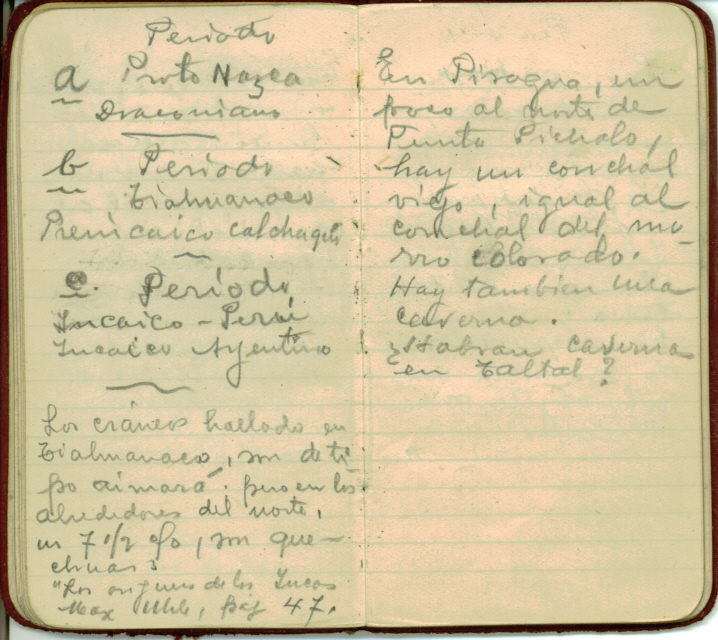 Periodo
a Proto Nazca
Draconiano
b Periodo
Tiahuanaco
Preincaico calchaqui
c. Periodo
Incaico - Perú
Incaico Argentino
Los cráneos hallado en
Tiahuanaco, son de ti
po aimará. pero en los
alrededores del norte,
un 7 1/2 o/o, son que-
chuas
"Los origenes de los Incas
Max Uhle, pag 47.
En Pisagua, un
poco al norte de
Punta Pichalo,
hay un conchal
viejo, igual al
conchal del mo-
rro colorado.
Hay tambien una
caverna.
¿Habran caverna
en Taltal?